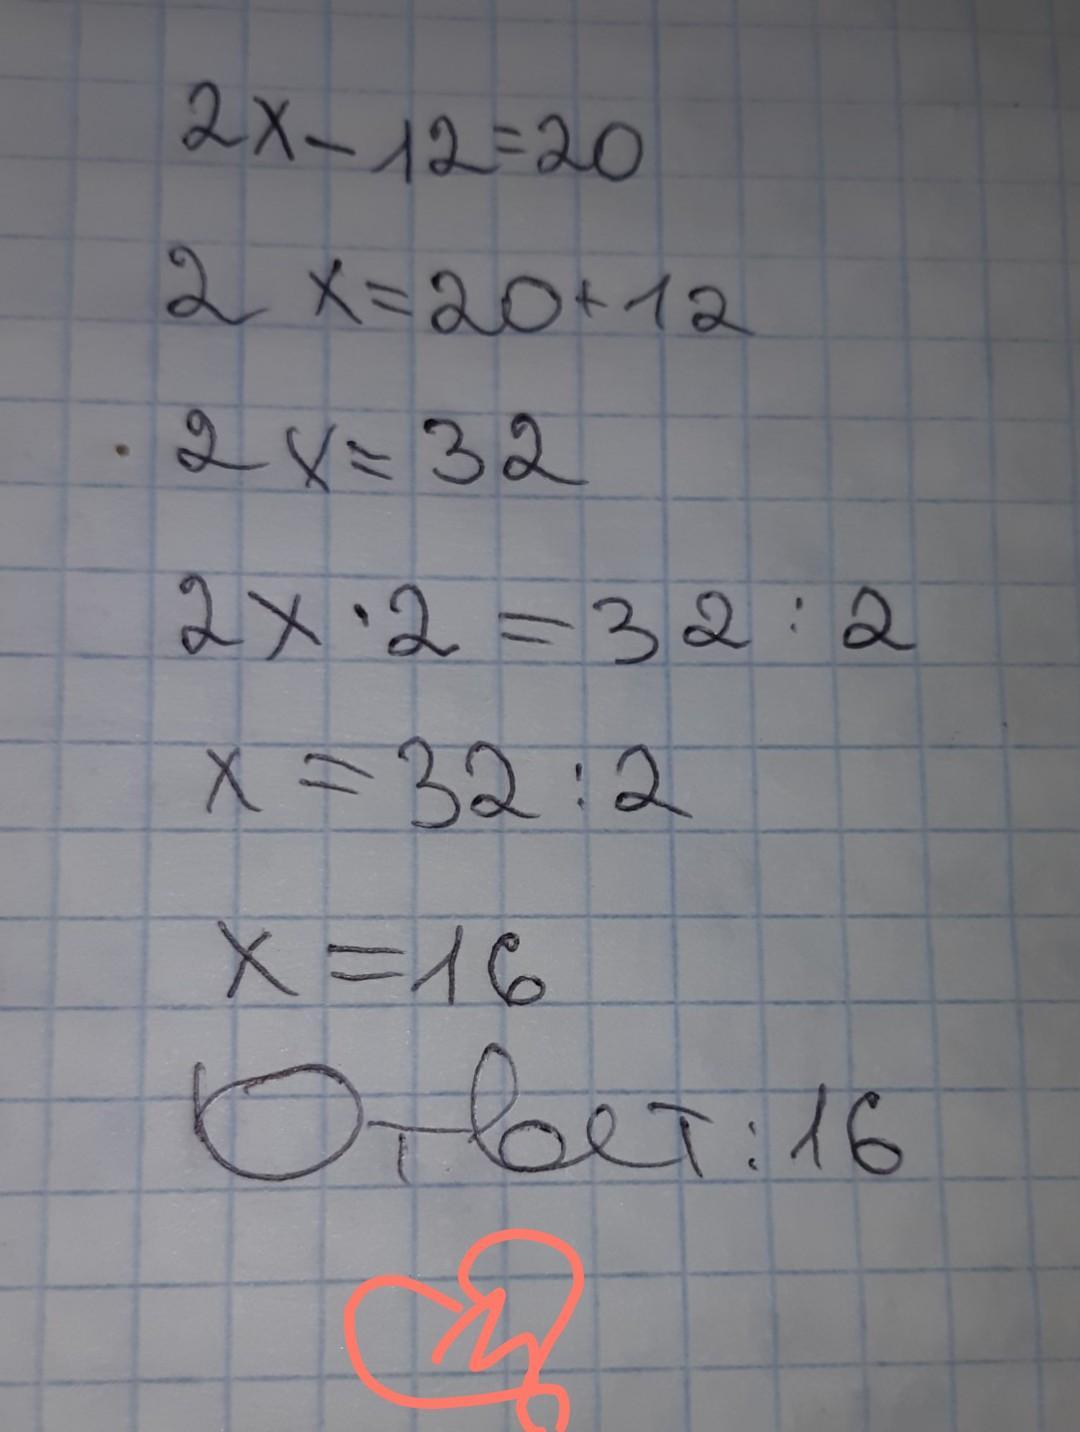 2x-12=20
2 x=20+12
2 x=32
2x·2=32:2
x=32:2
x=16
Ответ:16